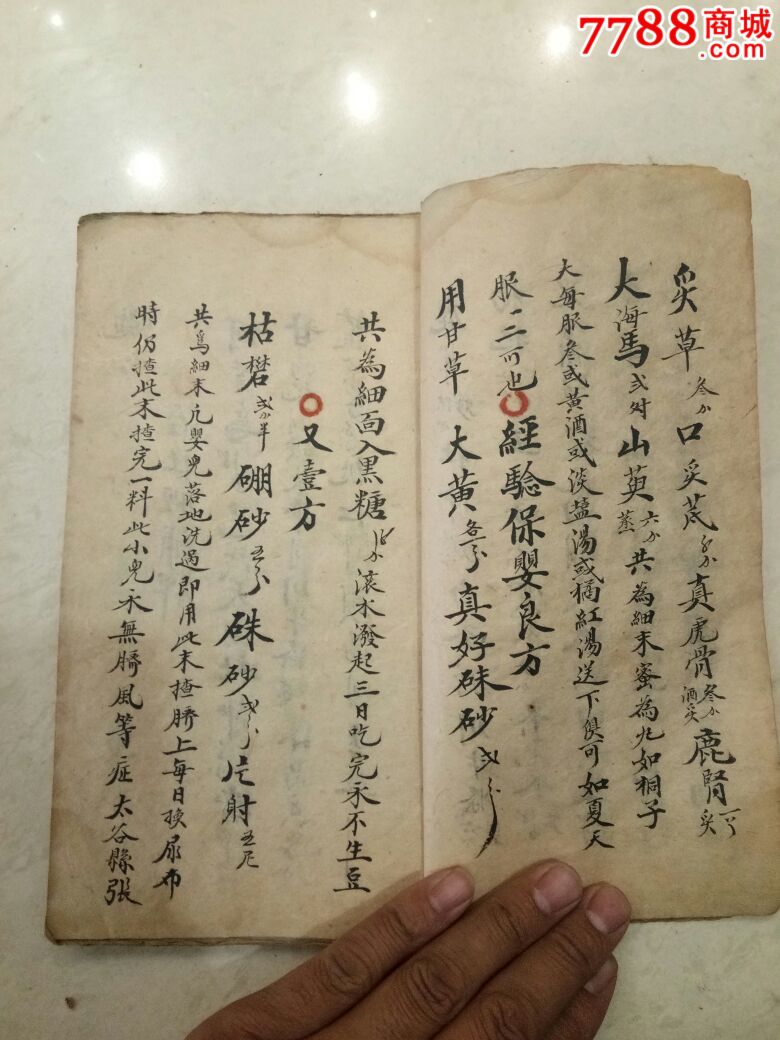 7788商城
.com
炙草 叁分 口炙芪 真虎骨 叁分 酒炙 鹿腎 炙
大海馬 弍对 山萸 六分 蒸 共為細末蜜為丸如桐子
大每服叁或黃酒或淡塩湯或橘紅湯送下俱可如夏天
服一二可也 ○經驗保嬰良方
用甘草 大黃 各一分 真好硃砂 弍分
共為細面入黑糖 滚水潑起三日吃完永不生豆
○又壹方
枯礬 弍分半 硼砂 五分 硃砂 弍分 片射 五厘
共爲細末凡嬰兒落地洗過即用此末揸臍上每日換尿布
時仍揸此末揸完一料此小兒永無臍風等症太谷縣張